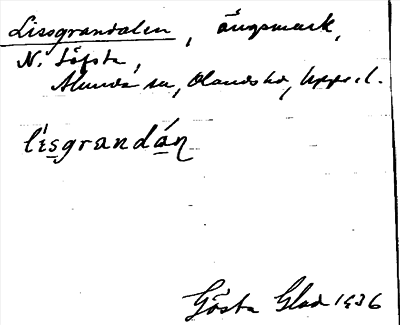 Lissgrandalen, ängsmark,
N. Löfsta,
Alunda sn, Olands hd, Upps. l.
lisgrandán
Gösta Glad 1936